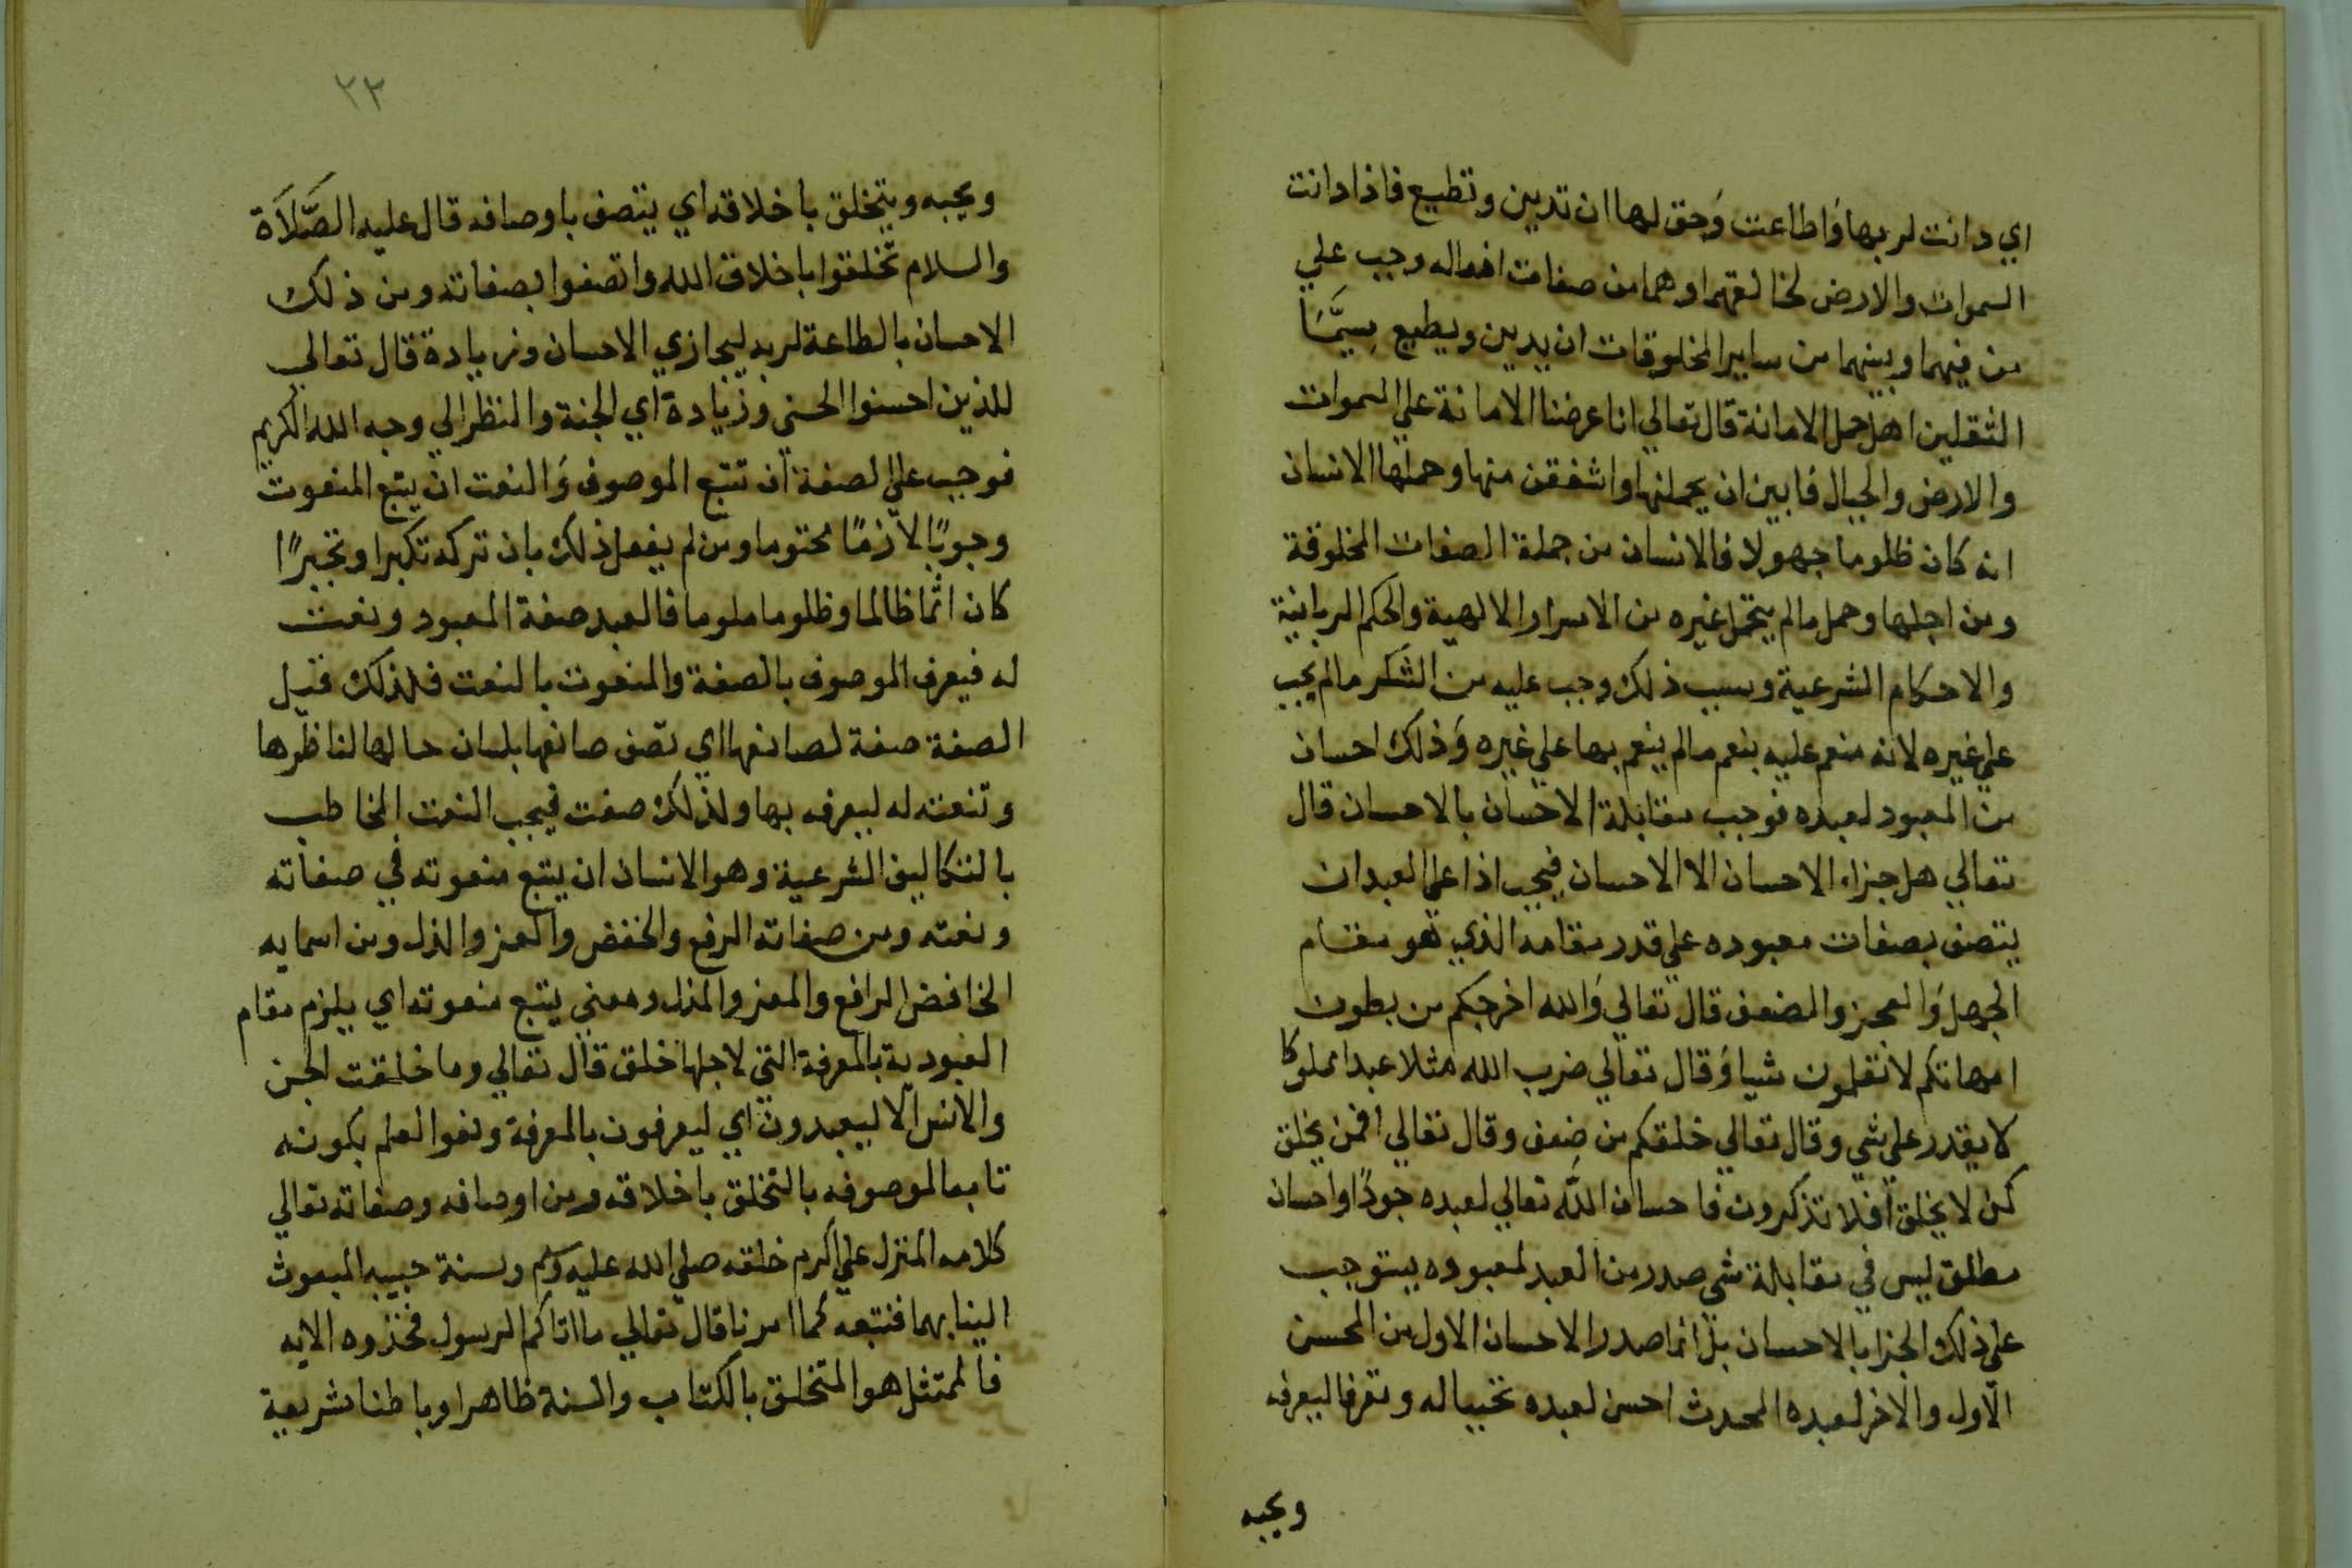 اي دانت لربها وَاطاعت وَحق لها ان تدين وتطيع فاذا دانت
السموات والارض لخالقهما وهما من صفات افعاله وجب علي
من فيهما وبينهما من ساير المخلوقات ان يدين ويطيع سِيَّمَا
الثقلين اهل حمل الامانة قال تعالي انا عرضنا الامانة علي السموات
والارض والجبال فابين ان يحملنها واشفقن منها وحملها الانسان
انه كان ظلوما جهولا فالانسان من جملة الصفات المخلوقة
ومن اجلها وحمل مالم يتحمل غيره من الاسرار الالهية والحكم الربانية
والاحكام الشرعية وبسبب ذلك وجب عليه من الشكر مالم يجب
علي غيره لانه منعم عليه بنعم مالم ينعم بها علي غيره وَذلك احسان
من المعبود لعبده فوجب مقابلة الاحسان بالاحسان قال
تعالي هل جزاء الاحسان الا الاحسان فيجب اذا علي العبد ان
يتصف بصفات معبوده علي قدر مقامه الذي هو مقام
الجهل وَالعجز والضعف قال تعالي وَالله اخرجكم من بطون
امهاتكم لا تعلمون شيا وَقال تعالي ضرب الله مثلا عبدا مملوكا
لا يقدر علي شي وقال تعالي خلقكم من ضعف وقال تعالي افمن يخلق
كمن لا يخلق أفلا تذكرون فاحسان الله تعالي لعبده جودًا واحسان
مطلق ليس في مقابلة شي صدر من العبد لمعبوده يستوجب
علي ذلك الجزا بالاحسان بل انما صدر الاحسان الاول من المحسن
الاول والاخر لعبده المحدث احسن لعبده تحببا له وتعرفا ليعرفه
ويحبه
٢٣
ويحبه ويتخلق باخلاقه اي يتصف باوصافه قال عليه الصَّلاَة
والسلام تخلقوا باخلاق الله واتصفوا بصفاته ومن ذلك
الاحسان بالطاعة لربه ليجازي الاحسان وزيادة قال تعالي
للذين احسنوا الحسني وزيادة اي الجنة والنظر الي وجه الله الكريم
فوجب علي الصفة ان تتبع الموصوف وَالنعت ان يتبع المنعوت
وجوبًا لازمًا محتوما ومن لم يفعل ذلك بان تركه تكبرا وتجبرًا
كان اثما ظالما وظلوما ملوما فالعبد صفة المعبود ونعت
له فيعرف الموصوف بالصفة والمنعوت بالنعت فلذلك قيل
الصفة صفة لصانعها اي تصف صانعها بلسان حالها لناظرها
وتنعته له ليعرفه بها ولذلك صفت فيجب النعت المخاطب
بالتكاليف الشرعية وهو الانسان ان يتبع منعوته في صفاته
ونعته ومن صفاته الرفع والخفض والعز والذل ومن اسمايه
الخافض الرافع والمعز والمذل ومعني يتبع منعوته اي يلزم مقام
العبودية بالمعرفة التي لاجلها خلق قال تعالي وما خلقت الجن
والانس الا ليعبدون اي ليعرفون بالمعرفة ونفوا لعلم بكونه
تابعا لموصوفه بالتخلق باخلاقه ومن اوصافه وصفاته تعالي
كلامه المنزل علي اكرم خلقه صلي الله عليه وسلم وسنة حبيبه المبعوث
الينا بهما فنتبعه كما امرنا قال تعالي ما اتاكم الرسول فخذوه الايه
فالممتثل هو المتخلق بالكتاب والسنة ظاهرا وباطنا شريعة